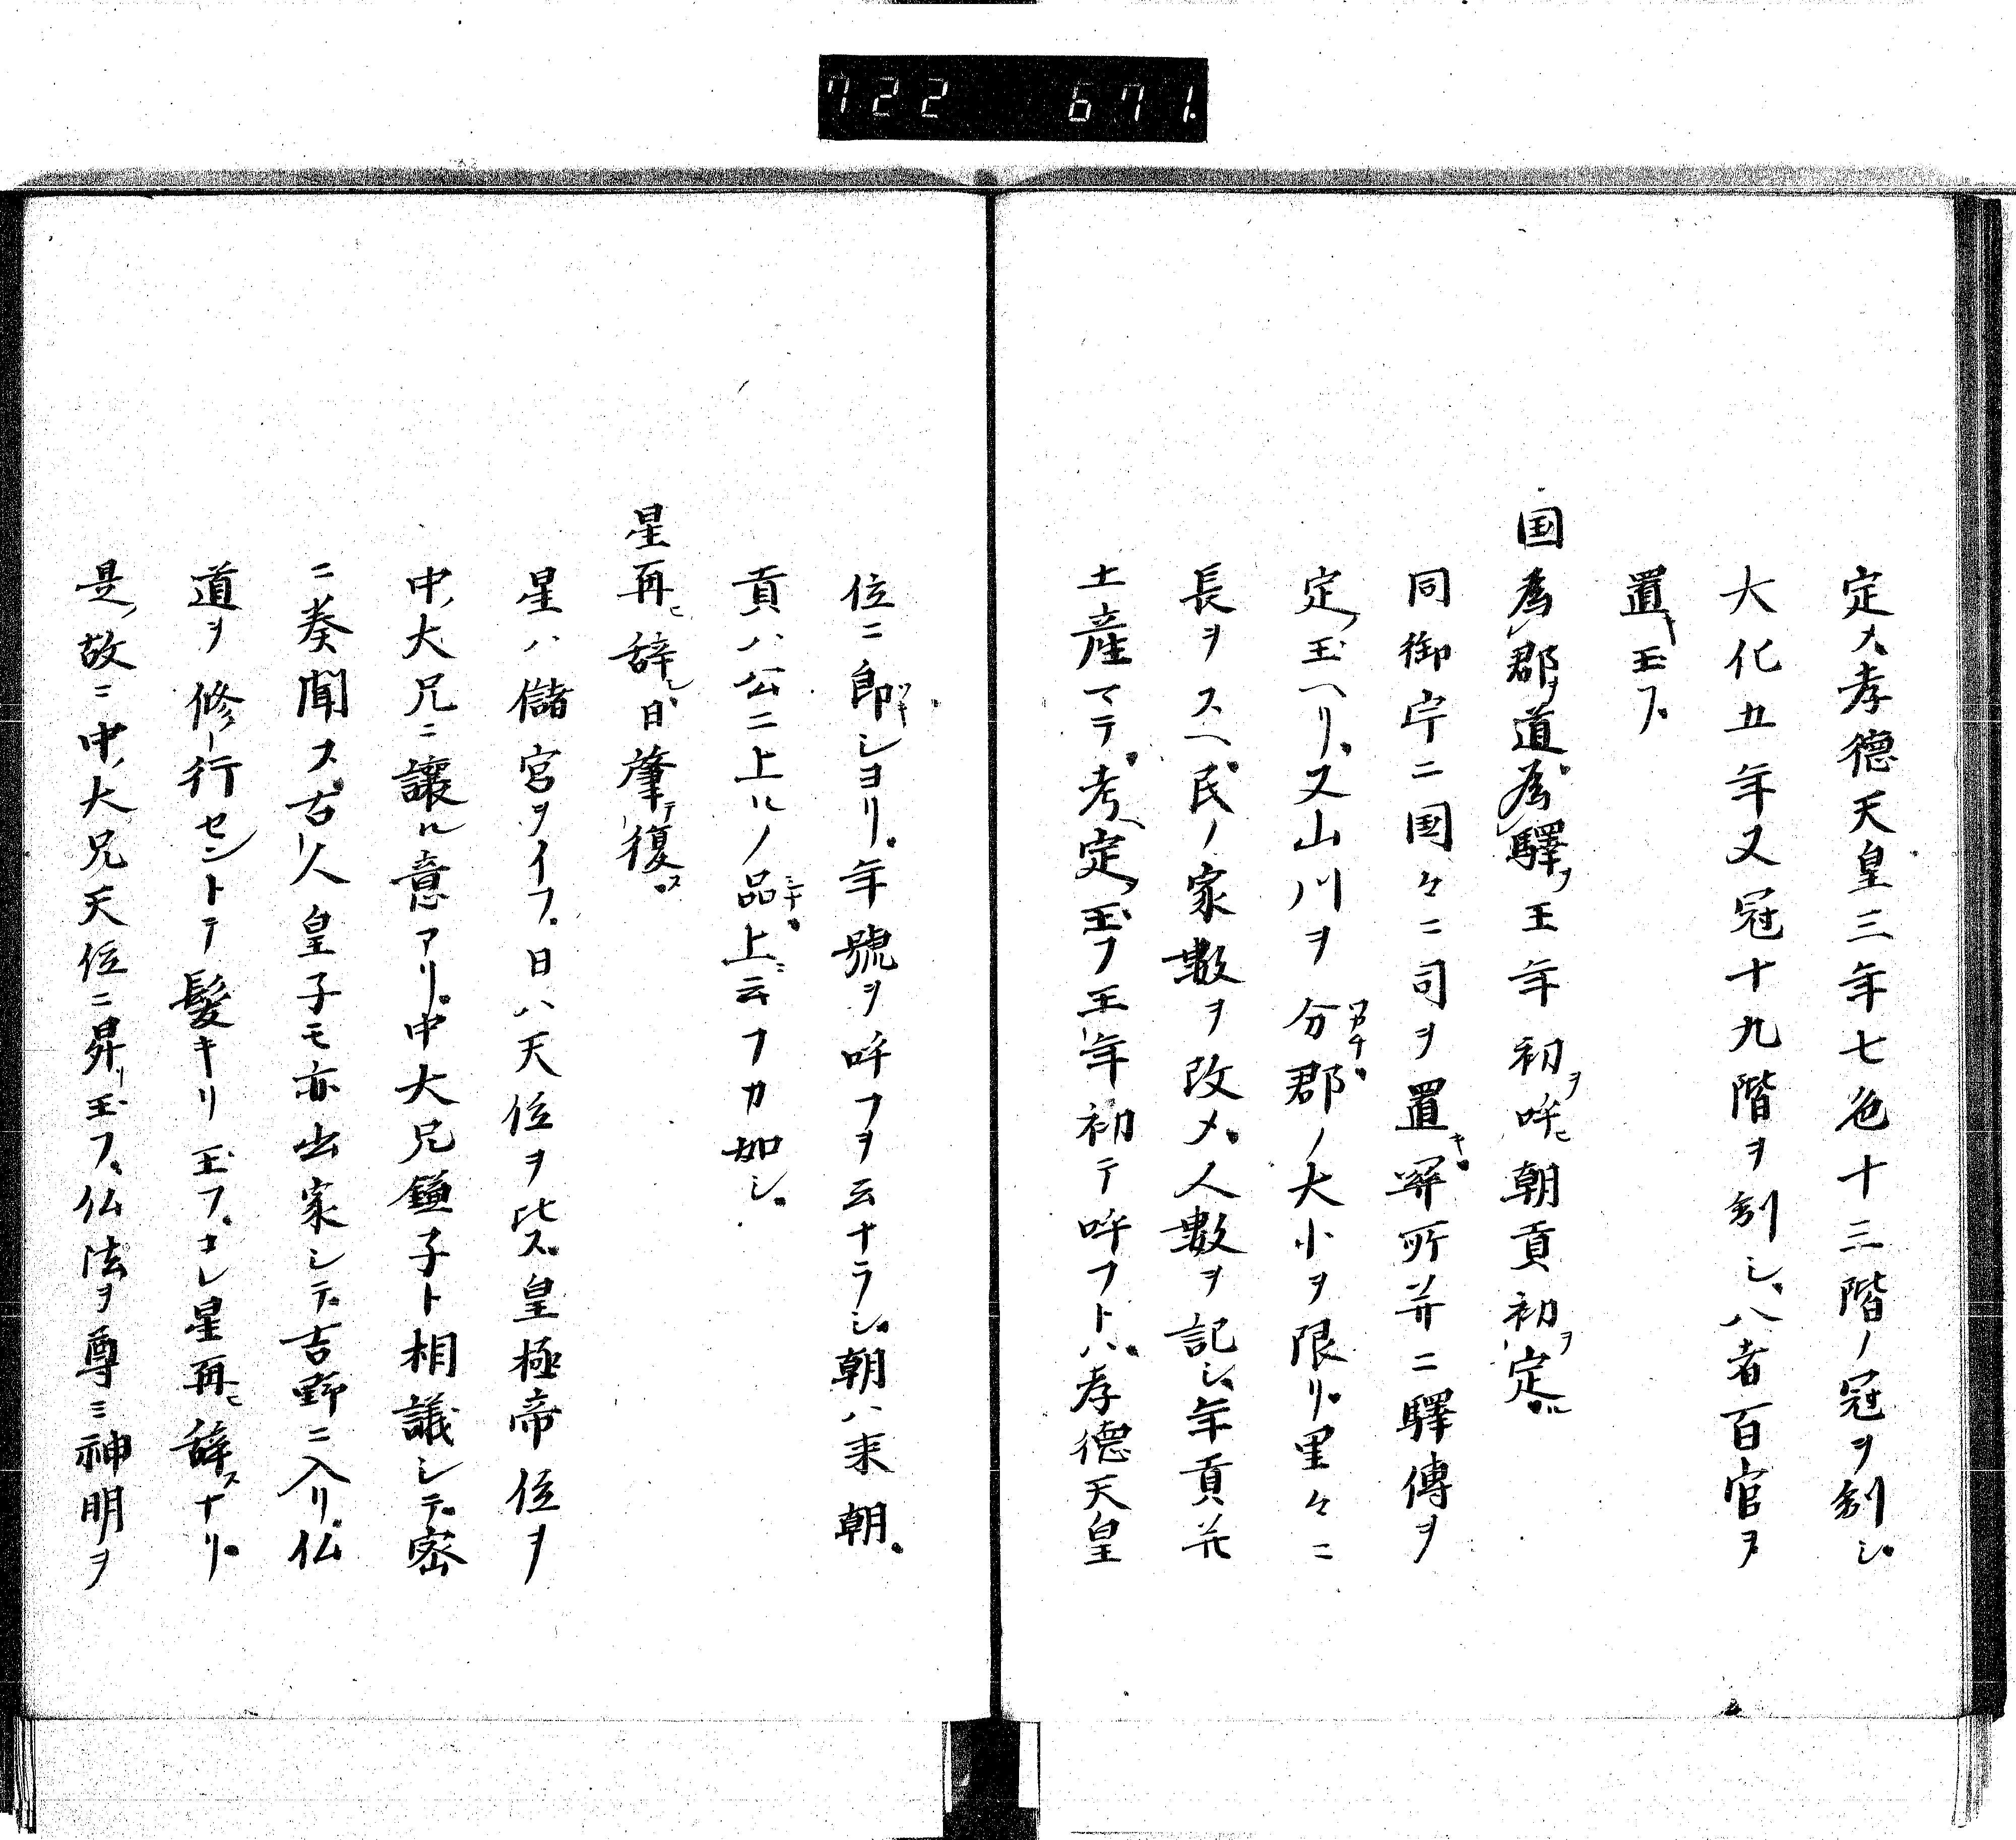 722 671.
定メ孝德天皇三年七色十三階ノ冠ヲ制シ
大化五年又冠十九階ヲ制シ八省百官ヲ
置キ玉フ
国為郡ヲ道為驛ヲ王年初ヲ呼ヒ朝貢初ヲ定ル
同御宇ニ国々ニ司ヲ置キ関所并ニ驛傳ヲ
定メ玉ヘリ又山川ヲ分郡ノ大小ヲ限リ里々ニ
長ヲスヘ民ノ家數ヲ改メ人數ヲ記シ年貢并
土産マテ考ヘ定メ玉フ王年初テ呼フトハ孝德天皇
位ニ即シヨリ年號ヲ呼フヲ云ナラシ朝ハ来朝
貢ハ公ニ上ルノ品上ニ云フカ如シ
星再ヒ辞シ日肇テ復ス
星ハ儲宮ヲイフ日ハ天位ヲ比ス皇極帝位ヲ
中ノ大兄ニ讓ル意アリ中大兄鎌子ト相議シテ密
ニ奏聞ス古人皇子モ亦出家シテ吉野ニ入リ仏
道ヲ修行セントテ髮キリ玉フコレ星再ヒ辞スナリ
是ノ故ニ中ノ大兄天位ニ昇リ玉フ仏法ヲ尊ミ神明ヲ